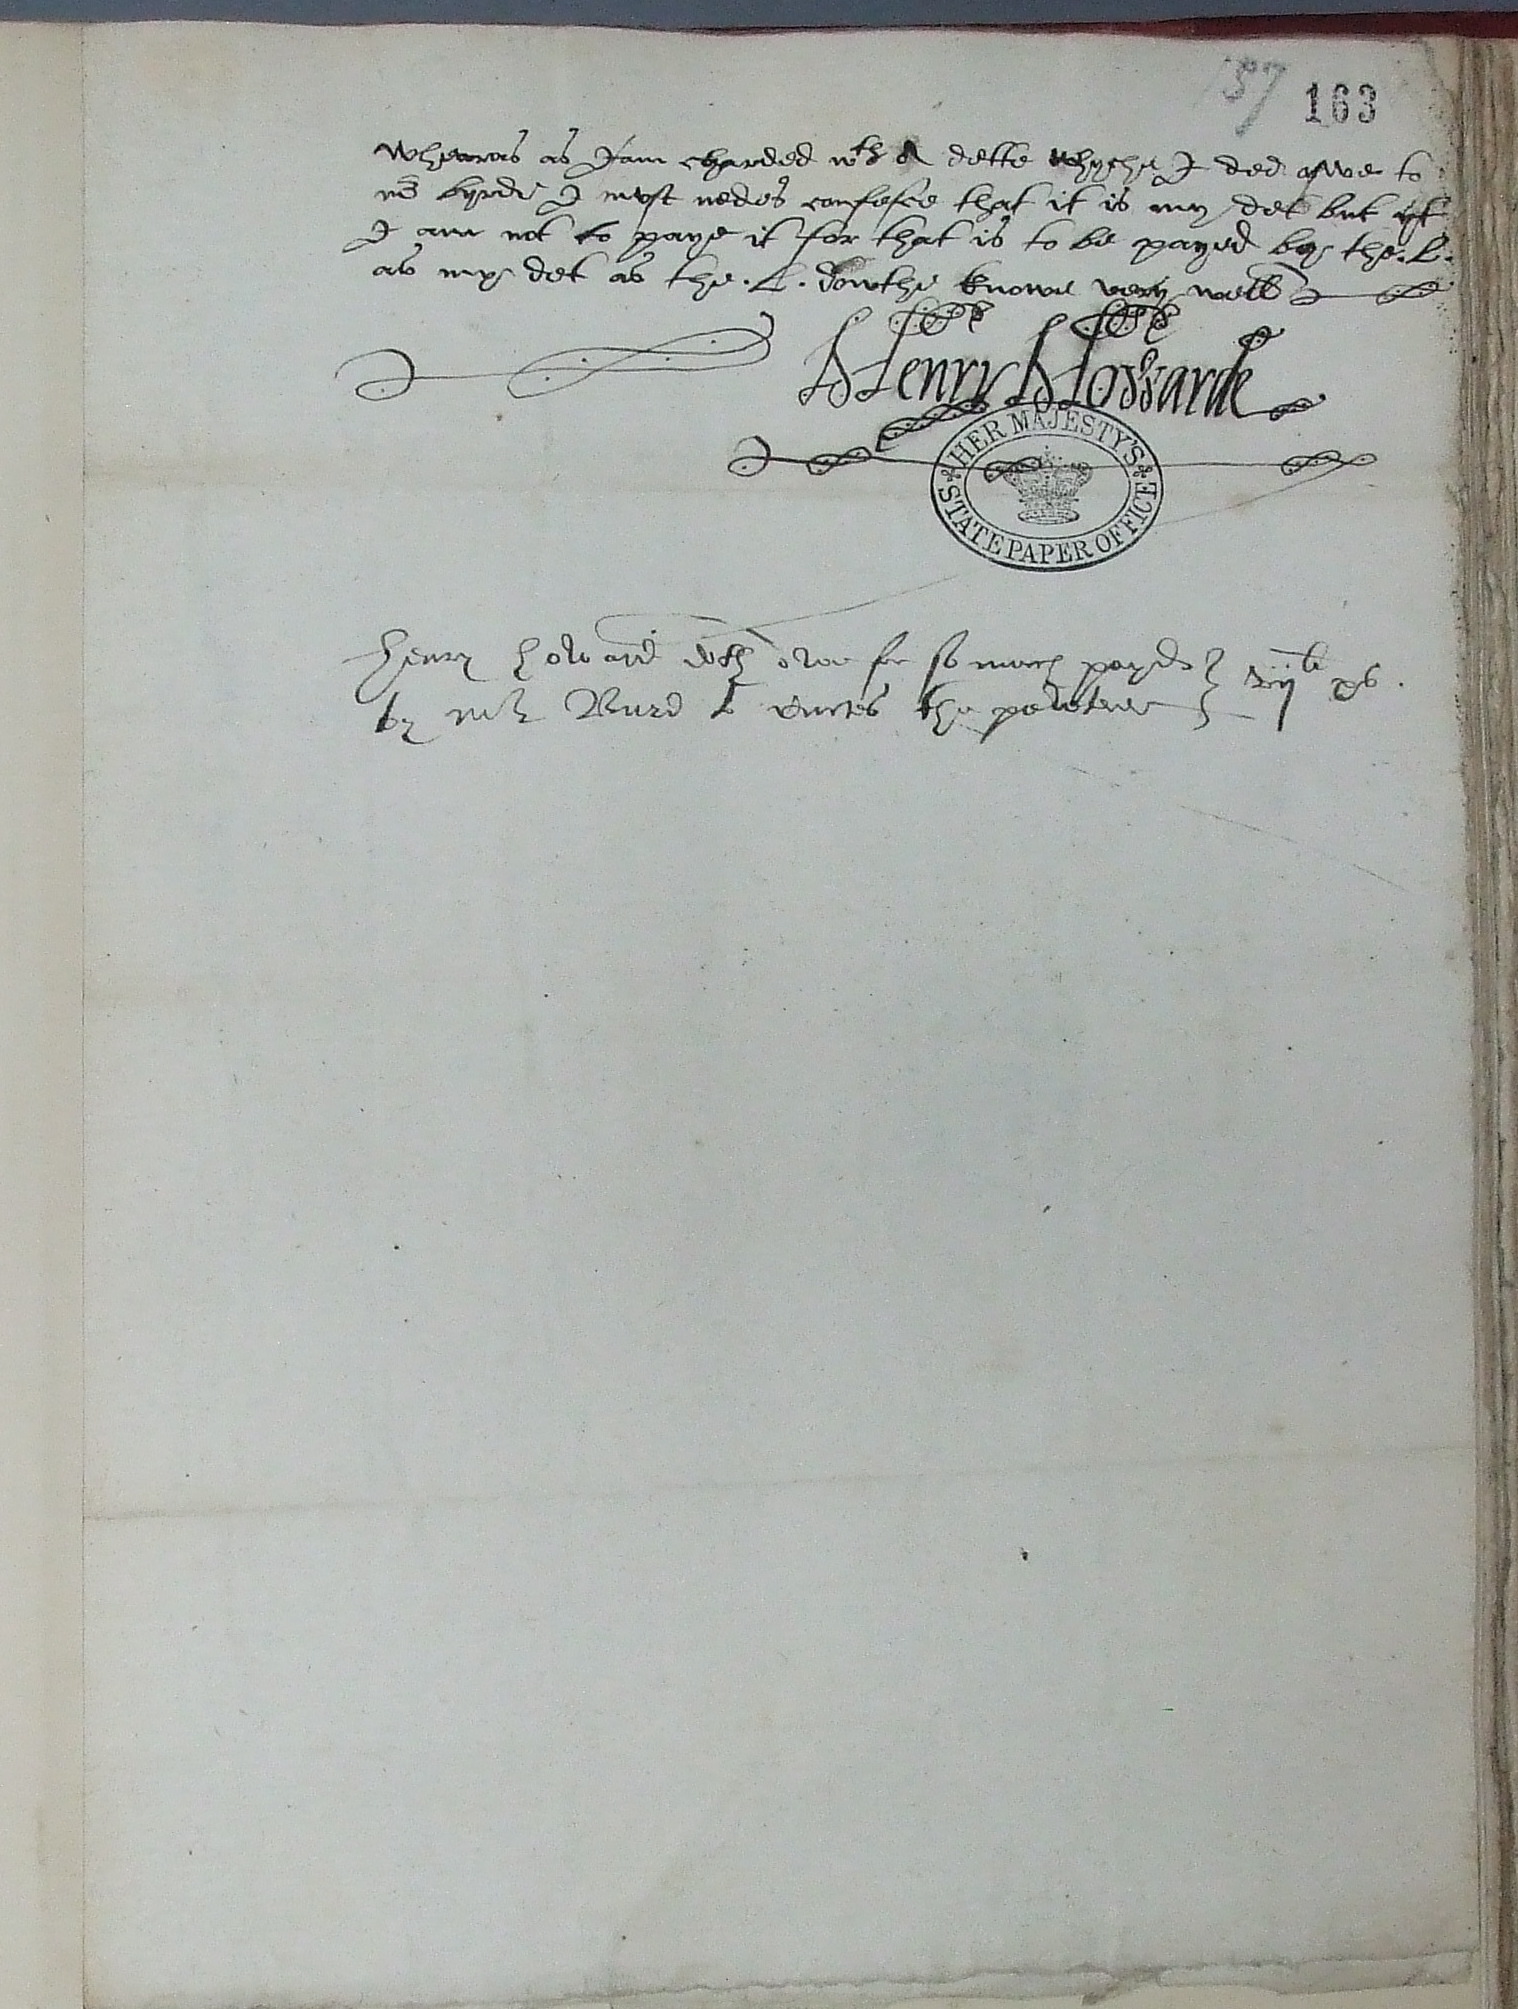 157 163
Wheras as I am charded wth A dette whyche I ded owe to
mr byrde I must nedes confesce that it is my det but yt
I am not to paye it for that is to be payed by the .L.
as my det as the .L. dowthe knowe very well
Henry Howarde
HER MAJESTY'S
STATE PAPER OFFICE
Henry Howard doth owe for so much payd
by mr Burd to the